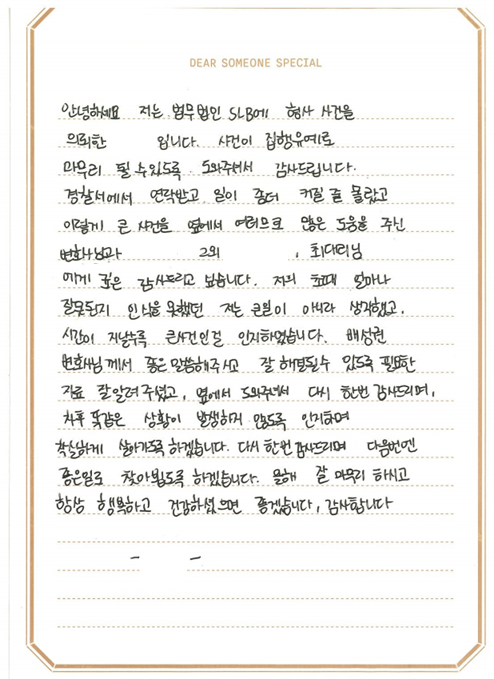 DEAR SOMEONE SPECIAL
안녕하세요 저는 법무법인 SLB에 형사 사건을
의뢰한 입니다. 사건이 집행유예로
마무리 될 수 있도록 도와주셔서 감사드립니다.
경찰서에서 연락받고 일이 좀더 커질 줄 몰랐고
이렇게 큰 사건을 옆에서 여러므로 많은 도움을 주신
변호사님과 그외 , 최대리님
에게 깊은 감사드리고 싶습니다. 저의 죄가 얼마나
잘못된지 인식을 못했던 저는 큰일이 아니라 생각했고,
시간이 지날수록 큰사건인걸 인지하였습니다. 배성권
변호사님께서 좋은 말씀해주시고 잘 해결될수 있도록 필요한
자료 잘 알려주셨고, 옆에서 도와주셔서 다시 한번 감사드리며,
차후 똑같은 상황이 발생하지 않도록 인지하며
착실하게 살아가도록 하겠습니다. 다시 한번 감사드리며 다음번엔
좋은일로 찾아뵙도록 하겠습니다. 올해 잘 마무리 하시고
항상 행복하고 건강하셨으면 좋겠습니다, 감사합니다